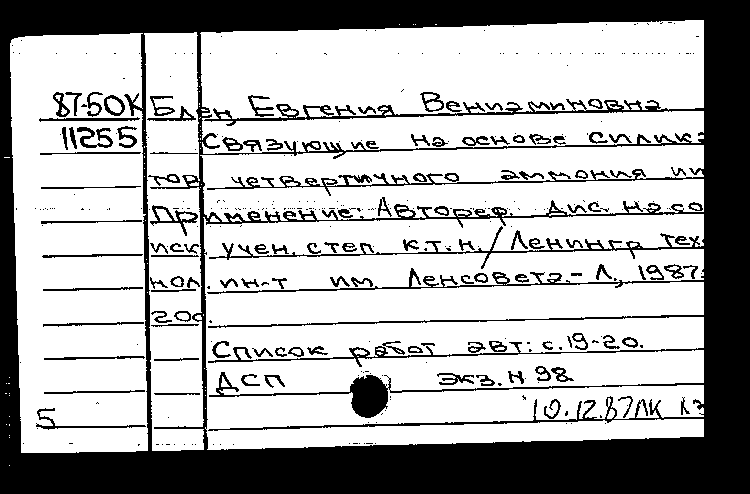 87-50К Блец Евгения Вениаминовна
11255 Связующие на основе силика
тов четвертичного аммония и
Применение: Автореф. дис. на со
иск. учен. степ. к.т.н. / Ленингр тех
нол. ин-т им. Ленсовета.- Л., 1987.
20с.
Список работ авт: с.19-20.
ДСП экз. н 98
5 10.12.87 ЛК